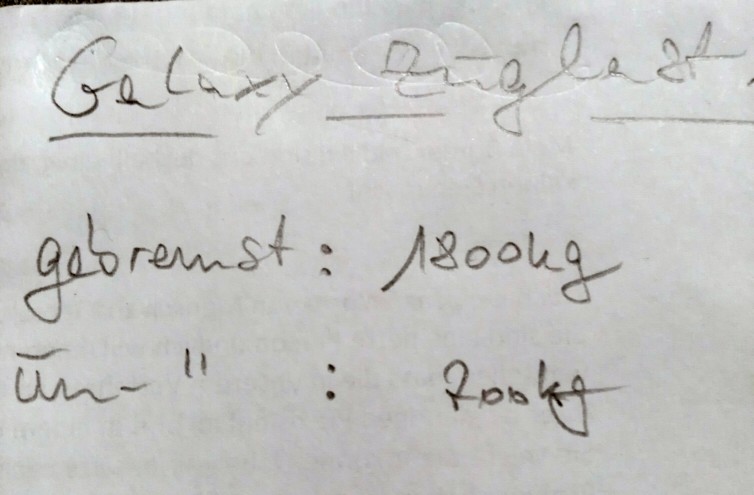 Galaxy Zuglast.
gebremst: 1800kg
un- " : 700kg